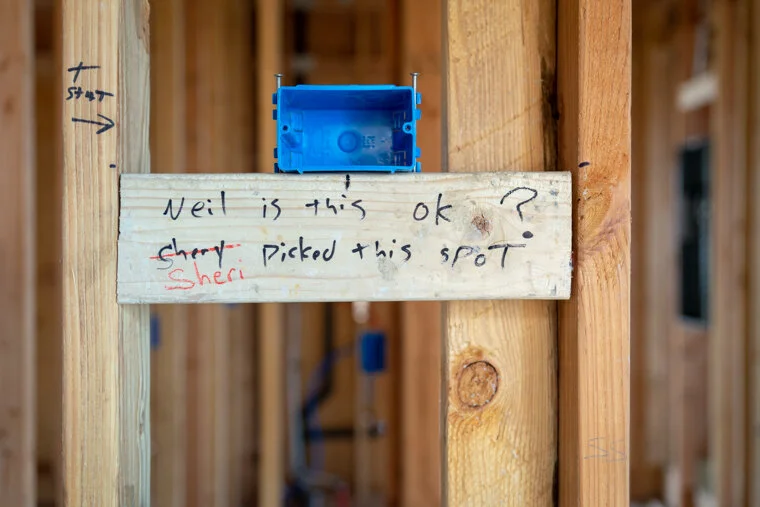 T
STAT
→
Neil is this ok ?
shery picked this spot
Sheri